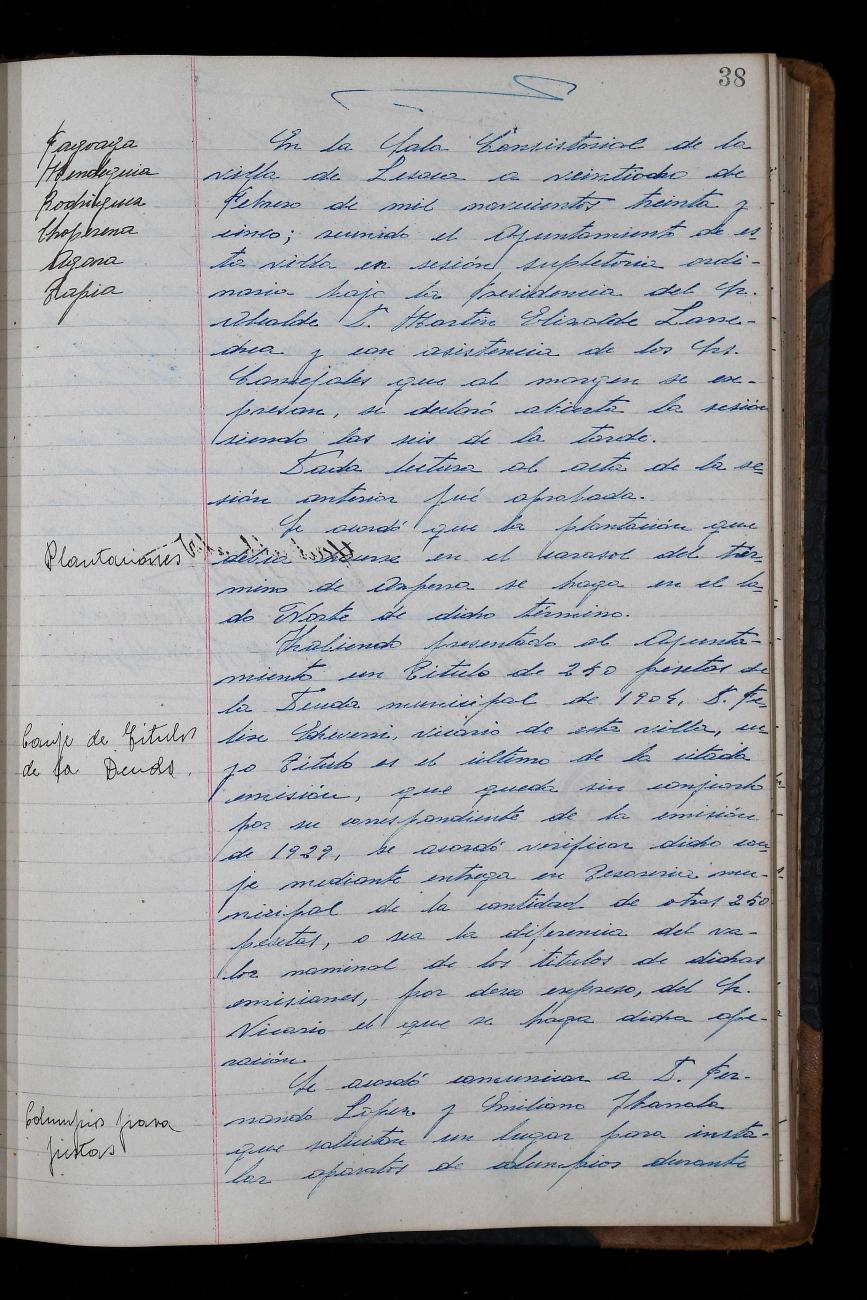 38
Fagoaga
Mendiguia
Rodriguez
Choperena
Agara
Tapia
En la Sala Consistorial de la
villa de Lesaca a veintiocho de
Febrero de mil novecientos treinta y
cinco; reunido el Ayuntamiento de es-
ta villa en sesión supletoria ordi-
naria bajo la Presidencia del Sr.
Alcalde D. Martin Elizalde Larre-
chea y con asistencia de los Srs.
Concejales que al margen se ex-
presan, se declaró abierta la sesión
siendo las seis de la tarde.
Dada lectura al acta de la se-
sión anterior fué aprobada.
Plantaciones
Se acordó que la plantación que
debia hacerse en el carasol del tér-
mino de se haga en el la-
do Norte de dicho término.
Canje de Titulos
de la Deuda.
Habiendo presentado al Ayunta-
miento un Titulo de 250 pesetas de
la Deuda municipal de 1904, D. Fe-
lix Echeverri, vicario de esta villa, cu-
yo Titulo es el último de la citada
emisión, que queda sin canjearlo
por su correspondiente de la emisión
de 1929, se acordó verificar dicho can-
je mediante entrega en Tesoreria mu-
nicipal de la cantidad de otras 250
pesetas, o sea la diferencia del va-
lor nominal de los titulos de dichas
emisiones, por deseo expreso, del Sr.
Vicario el que se haga dicha ope-
ración.
Columpios para
fiestas
Se acordó comunicar a D. Fer-
nando Lopez y Emiliano
que solicitan un lugar para insta-
lar aparatos de columpios durante